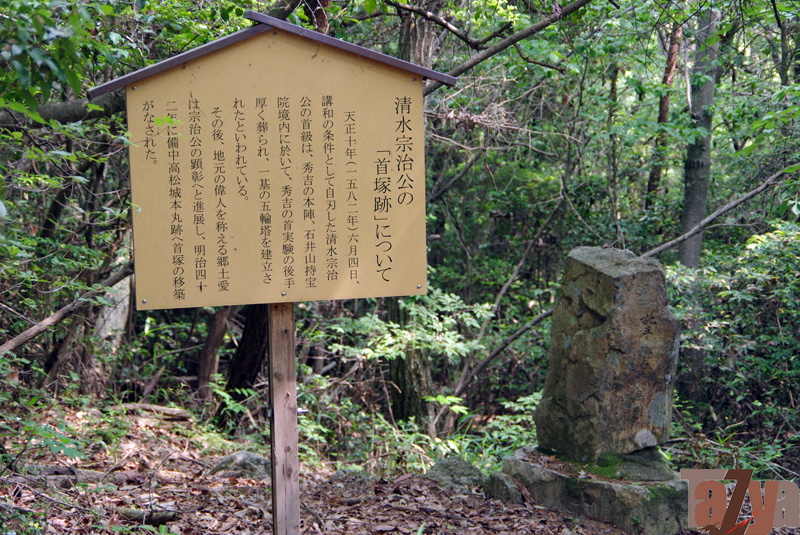 清水宗治公の
「首塚跡」について
天正十年(一五八二年)六月四日、
講和の条件として自刃した清水宗治
公の首級は、秀吉の本陣、石井山持宝
院境内に於いて、秀吉の首実験の後手
厚く葬られ、一基の五輪塔を建立さ
れたといわれている。
その後、地元の偉人を称える郷土愛
は宗治公の顕彰へと進展し、明治四十
二年に備中高松城本丸跡へ首塚の移築
がなされた。
TaZya